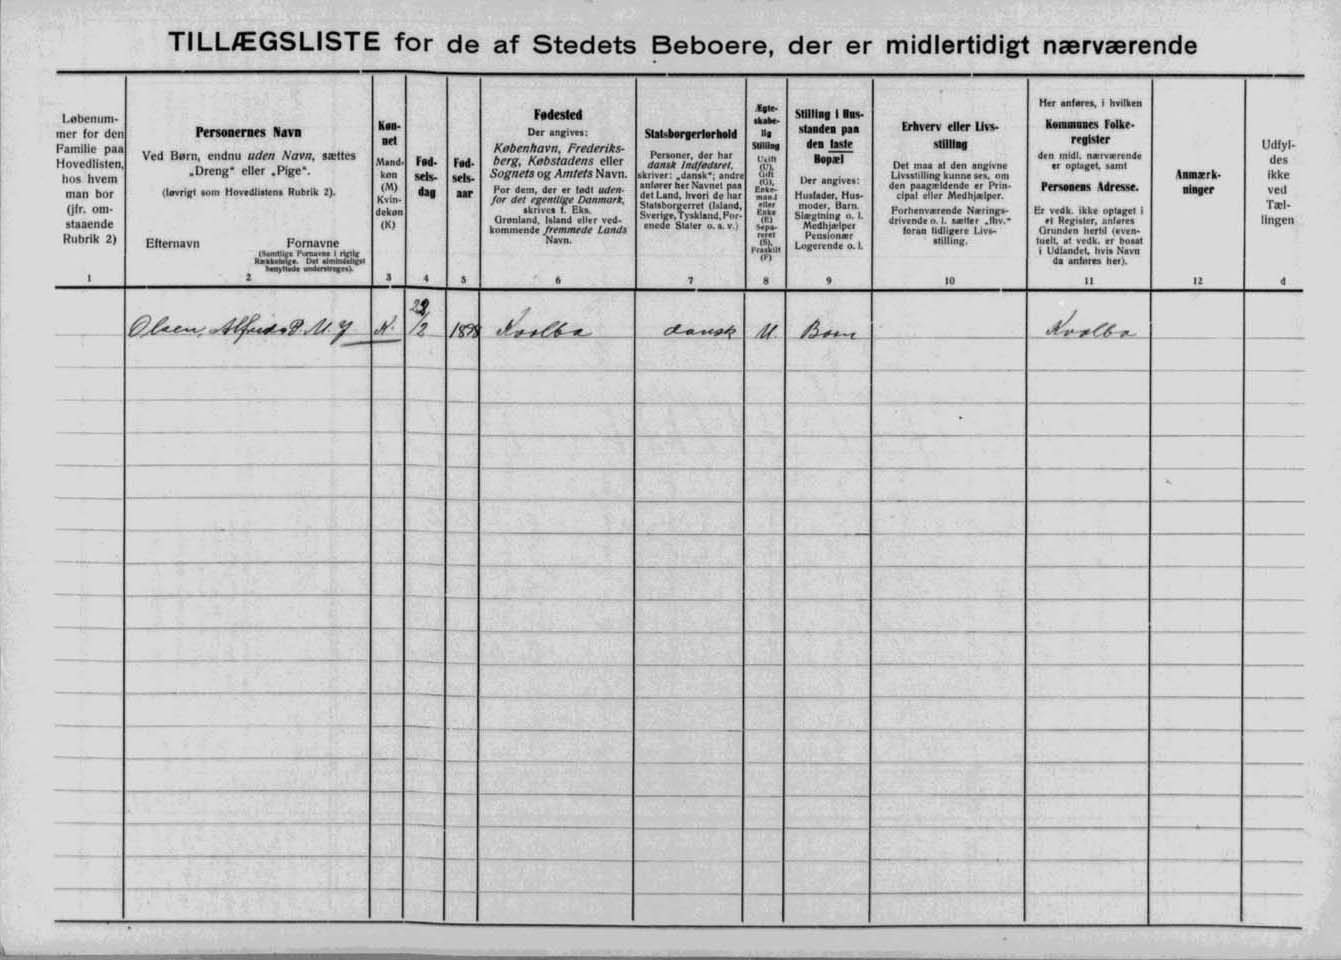 TILLÆGSLISTE for de af Stedets Beboere, der er midlertidigt nærværende
Løbenum-
mer for den
Familie paa
Hovedlisten,
hos hvem
man bor
(jfr. om-
staaende
Rubrik 2)
1
Personernes Navn
Ved Børn, endnu uden Navn, sættes
„Dreng“ eller „Pige“.
(Iøvrigt som Hovedlistens Rubrik 2).
Efternavn Fornavne
(Samtlige Fornavne i rigtig
Rækkefølge. Det almindeligst
benyttede understreges).
2
Køn-
net
Mand-
køn
(M)
Kvin-
dekøn
(K)
3
Fød-
sels-
dag
4
Fød-
sels-
aar
5
Fødested
Der angives:
København, Frederiks-
berg, Købstadens eller
Sognets og Amtets Navn.
For dem, der er født uden-
for det egentlige Danmark,
skrives f. Eks.
Grønland, Island eller ved-
kommende fremmede Lands
Navn.
6
Statsborgerforhold
Personer, der har
dansk Indfødsret,
skriver: „dansk“; andre
anfører her Navnet paa
det Land, hvori de har
Statsborgerret (Island,
Sverige, Tyskland, For-
enede Stater o. s. v.)
7
Ægte-
skabe-
lig
Stilling
Ugift
(U),
Gift
(G),
Enke-
mand
eller
Enke
(E)
Sepa-
reret
(S),
Fraskilt
(F)
8
Stilling i Hus-
standen paa
den faste
Bopæl
Der angives:
Husfader, Hus-
moder, Barn.
Slægtning o. l.
Medhjælper
Pensionær
Logerende o. l.
9
Erhverv eller Livs-
stilling
Det maa af den angivne
Livsstilling kunne ses, om
den paagældende er Prin-
cipal eller Medhjælper.
Forhenværende Nærings-
drivende o. l. sætter „fhv.“
foran tidligere Livs-
stilling.
10
Her anføres, i hvilken
Kommunes Folke-
register
den midl. nærværende
er optaget, samt
Personens Adresse.
Er vedk. ikke optaget i
et Register, anføres
Grunden hertil (even-
tuelt, at vedk. er bosat
i Udlandet, hvis Navn
da anføres her).
11
Anmærk-
ninger
12
Udfyl-
des
ikke
ved
Tæl-
lingen
d
Olsen, P. M. J. K. 22/2 1898 Kvalba dansk U. Barn Kvalba